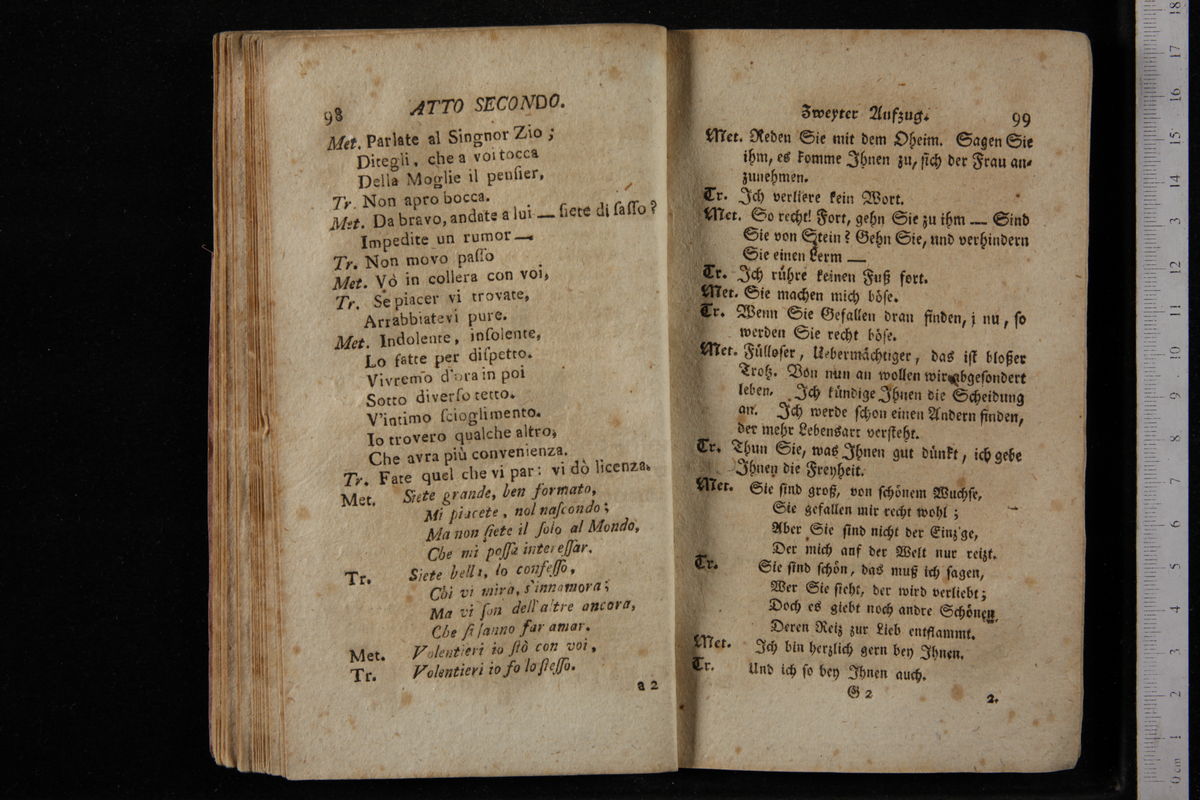 98 ATTO SECONDO.
Met. Parlate al Singnor Zio ;
Ditegli, che a voi tocca
Della Moglie il penſier,
Tr. Non apro bocca.
Met. Da bravo, andate a lui — ſiete di ſaſſo?
Impedite un rumor —
Tr. Non movo paſſo
Met. Vò in collera con voi,
Tr. Se piacer vi trovate,
Arrabbiatevi pure.
Met. Indolente, inſolente,
Lo fatte per diſpetto.
Vivremo d'ora in poi
Sotto diverſo tetto.
V'intimo ſcioglimento.
Io trovero qualche altro,
Che avra più convenienza.
Tr. Fate quel che vi par: vi dò licenza.
Met. Siete grande, ben formato,
Mi piacete, nol naſcondo;
Ma non ſiete il ſolo al Mondo,
Che mi poſſa intereſſar.
Tr. Siete bella, lo confeſſo,
Chi vi mira, s'innamora;
Ma vi ſon dell'altre ancora,
Che ſi ſanno far amar.
Met. Volentieri io ſtò con voi,
Tr. Volentieri io fo lo ſteſſo.
a 2
Zweyter Aufzug. 99
Met. Reden Sie mit dem Oheim. Sagen Sie
ihm, es komme Ihnen zu, ſich der Frau an-
zunehmen.
Tr. Ich verliere kein Wort.
Met. So recht! Fort, gehn Sie zu ihm — Sind
Sie von Stein? Gehn Sie, und verhindern
Sie einen Lerm —
Tr. Ich rühre keinen Fuß fort.
Met. Sie machen mich böſe.
Tr. Wenn Sie Gefallen dran finden, j nu, ſo
werden Sie recht böſe.
Met. Fülloſer, Uebermächtiger, das iſt bloßer
Trotz. Von nun an wollen wir abgeſondert
leben. Ich kündige Ihnen die Scheidung
an. Ich werde ſchon einen Andern finden,
der mehr Lebensart verſteht.
Tr. Thun Sie, was Ihnen gut dünkt, ich gebe
Ihnen die Freyheit.
Met. Sie ſind groß, von ſchönem Wuchſe,
Sie gefallen mir recht wohl;
Aber Sie ſind nicht der Einzige,
Der mich auf der Welt nur reizt.
Tr. Sie ſind ſchön, das muß ich ſagen,
Wer Sie ſieht, der wird verliebt;
Doch es giebt noch andre Schönen,
Deren Reiz zur Lieb entflammt.
Met. Ich bin herzlich gern bey Ihnen.
Tr. Und ich ſo bey Ihnen auch.
G 2 2.
18
17
16
15
14
13
12
11
10
9
8
7
6
5
4
3
2
1
0 cm